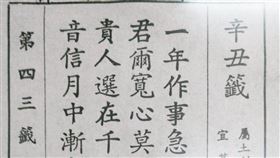 辛丑籤
屬土
宜
一年作事急
君爾寬心莫
貴人還在千
音信月中漸
第四三籤